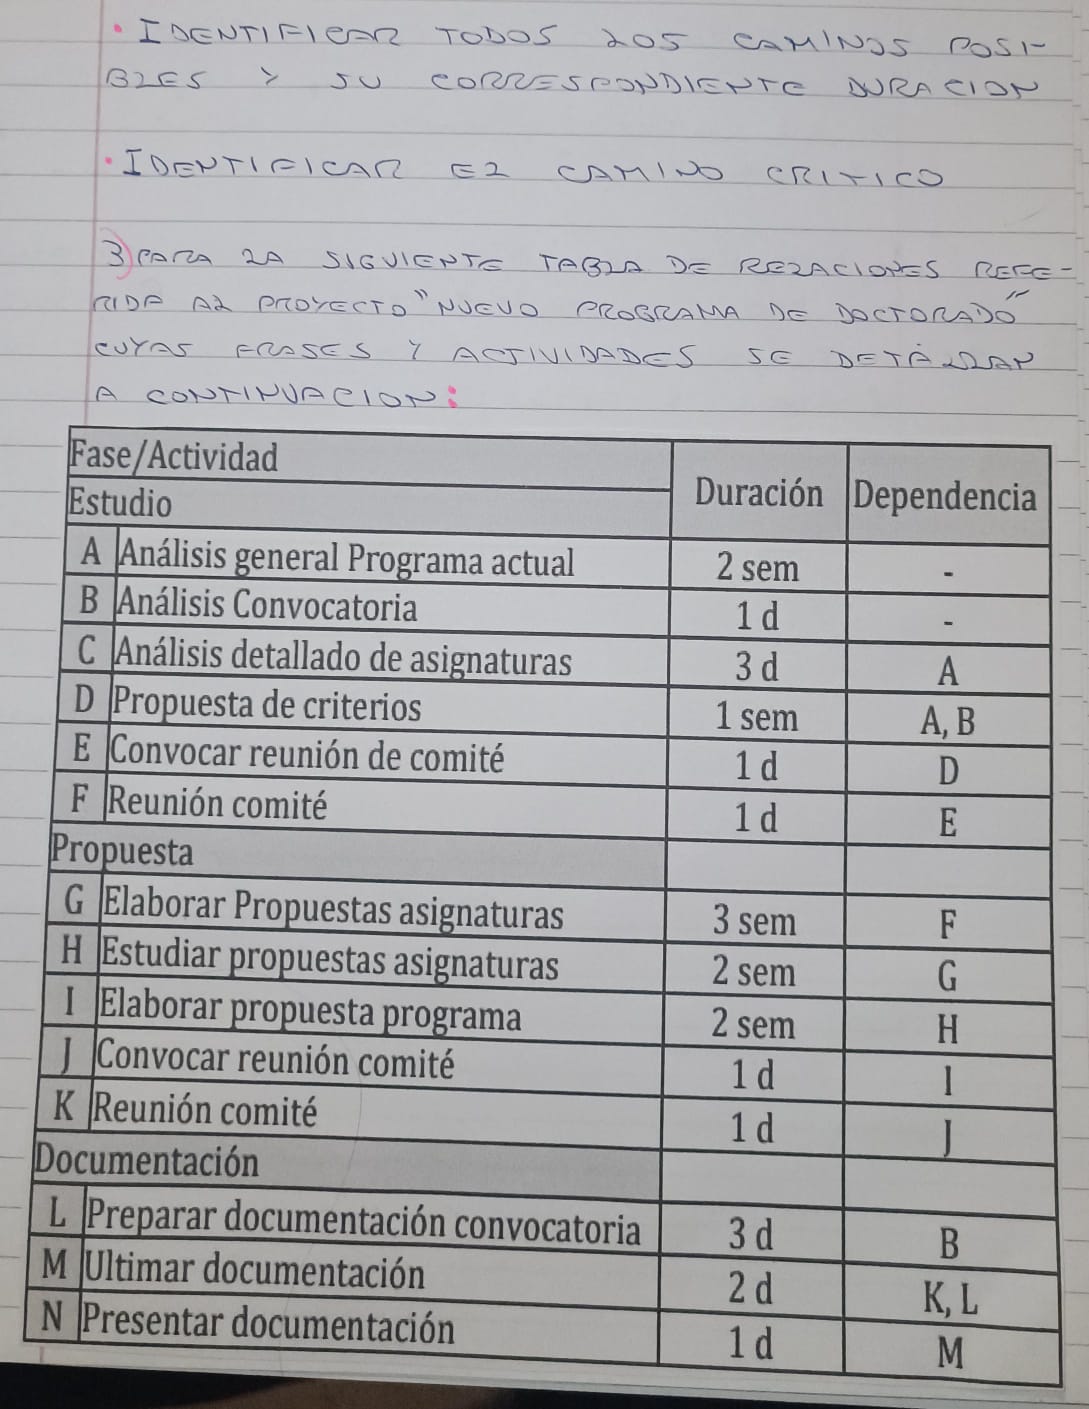 • IDENTIFICAR TODOS LOS CAMINOS POSI-
BLES Y SU CORRESPONDIENTE DURACION
• IDENTIFICAR EL CAMINO CRITICO
3) PARA LA SIGUIENTE TABLA DE RELACIONES REFE-
RIDA AL PROYECTO "NUEVO PROGRAMA DE DOCTORADO"
CUYAS FRASES Y ACTIVIDADES SE DETALLAN
A CONTINUACION:
Fase/Actividad Duración Dependencia
Estudio
A Análisis general Programa actual 2 sem -
B Análisis Convocatoria 1 d -
C Análisis detallado de asignaturas 3 d A
D Propuesta de criterios 1 sem A, B
E Convocar reunión de comité 1 d D
F Reunión comité 1 d E
Propuesta
G Elaborar Propuestas asignaturas 3 sem F
H Estudiar propuestas asignaturas 2 sem G
I Elaborar propuesta programa 2 sem H
J Convocar reunión comité 1 d I
K Reunión comité 1 d J
Documentación
L Preparar documentación convocatoria 3 d B
M Ultimar documentación 2 d K, L
N Presentar documentación 1 d M